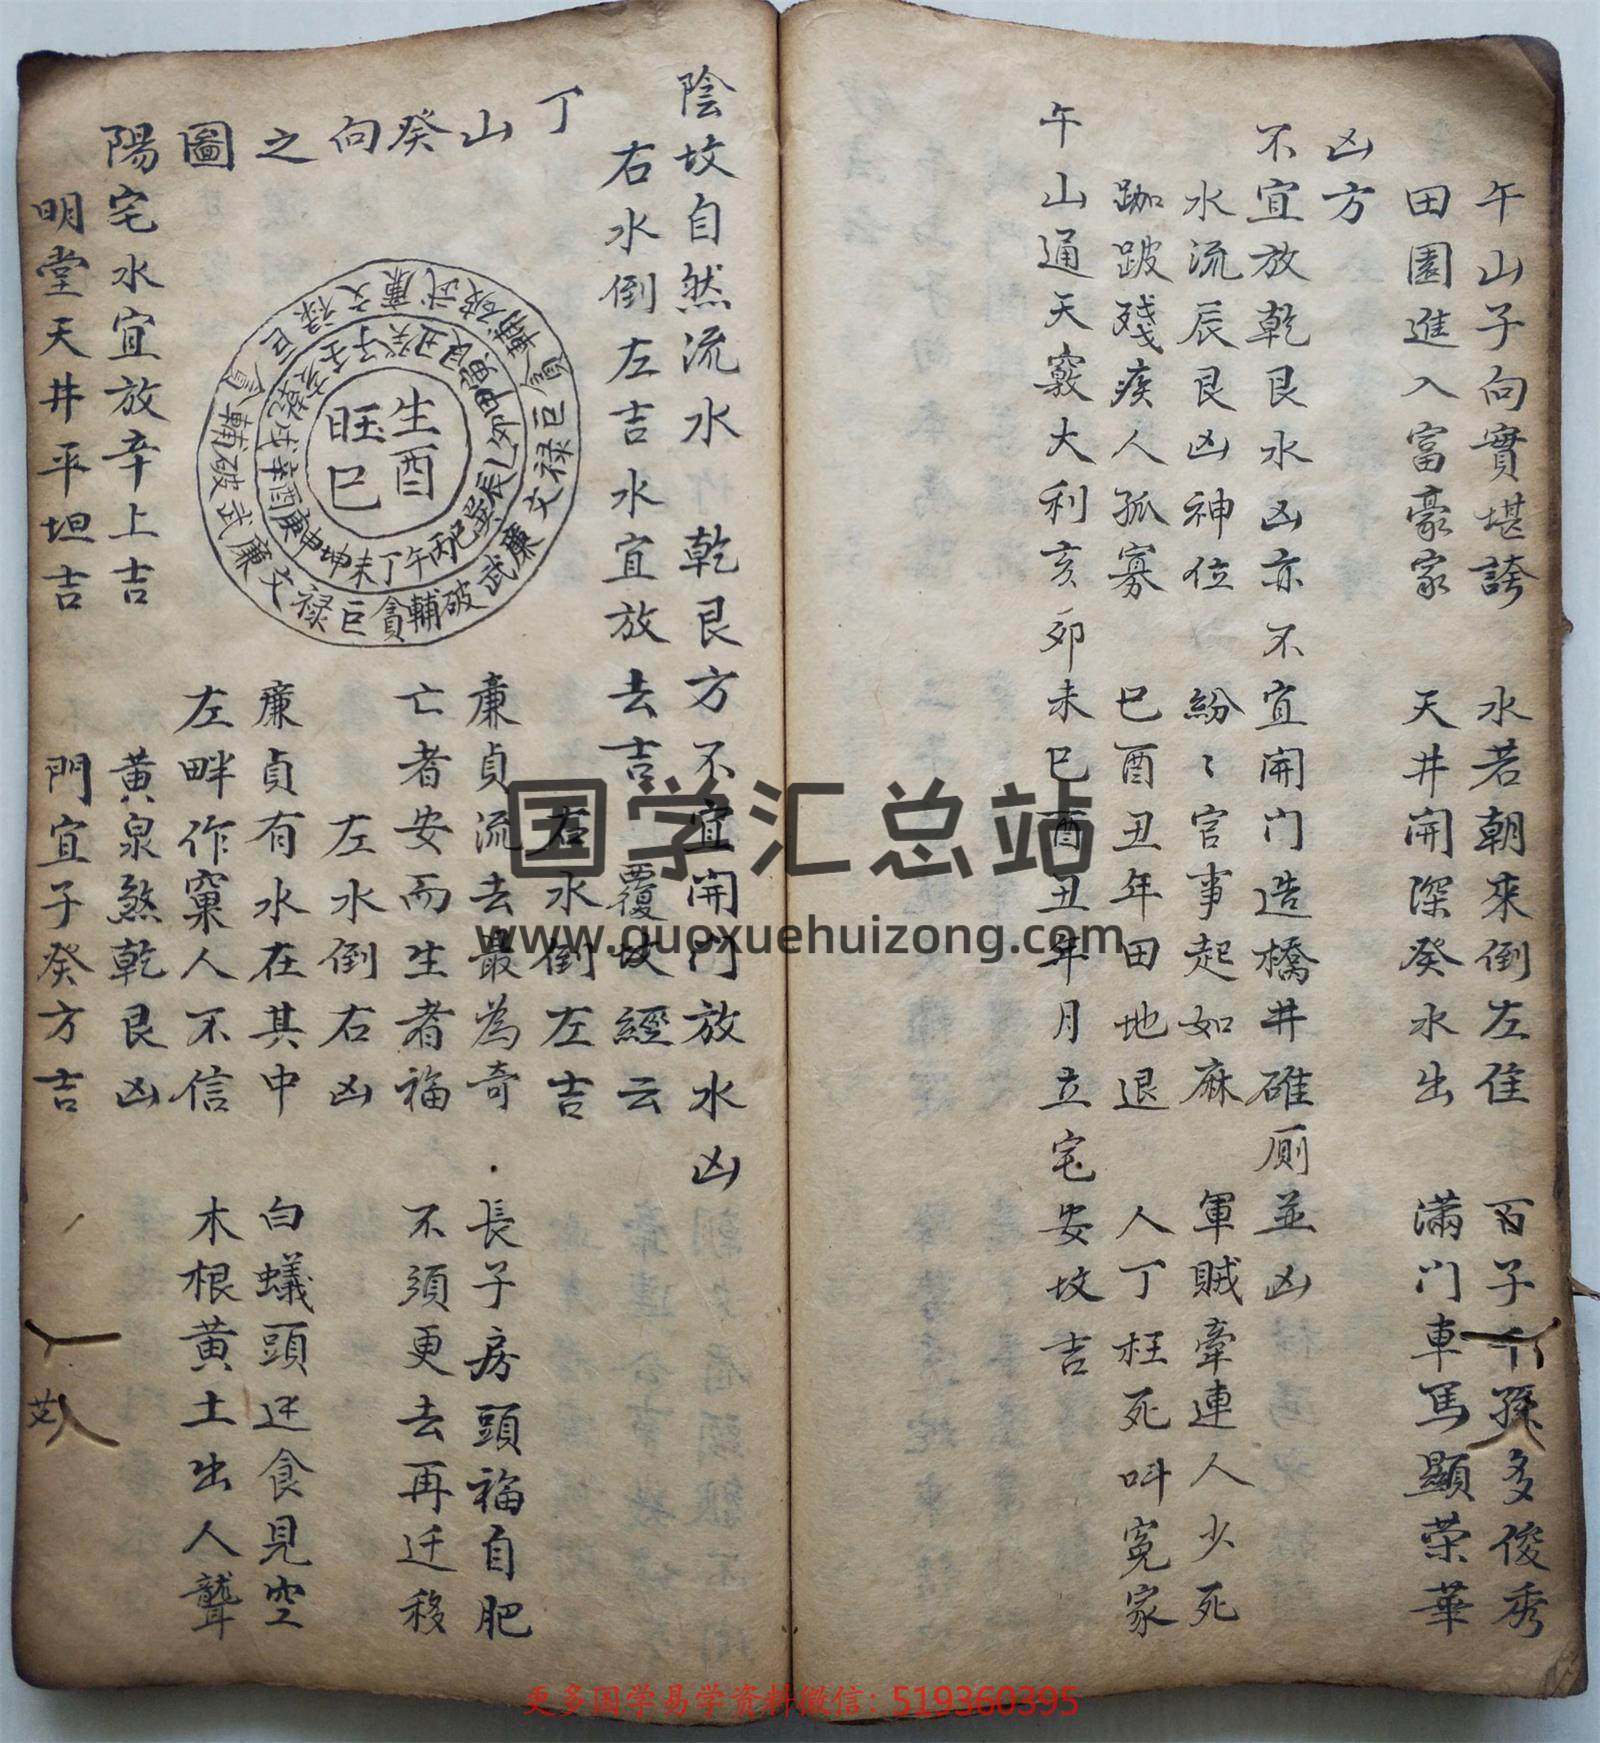 午山子向實堪誇 水若朝來倒左佳 百子千孫多俊秀
田園進入富豪家 天井開深癸水出 滿门車馬顯荣華
凶方
不宜放乾艮水凶亦不宜開门造橋井碓厠並凶
水流辰艮凶神位 紛〻官事起如麻 軍賊牽連人少死
跏跛殘疾人孤寡 巳酉丑年田地退 人丁枉死叫冤家
午山通天竅大利亥夘未巳酉丑年月立宅安坟吉
陰坟自然流水 乾艮方不宜開门放水凶
右水倒左吉水宜放去吉 覆坟經云
丁山癸向之圖
右水倒左吉
廉貞流去最為奇 長子房頭福自肥
亡者安而生者福 不須更去再迁移
左水倒右凶
廉貞有水在其中 白蟻頭迕食見空
左畔作窠人不信 木根黄土出人聾
黄泉煞乾艮凶
陽宅水宜放辛上吉
明堂天井平坦吉 門宜子癸方吉
生旺
酉巳
壬子癸丑艮寅甲夘乙辰巽巳丙午丁未坤申庚酉辛戌乾亥
貪巨禄文廉武破輔貪巨禄文廉武破輔貪巨禄文廉武破輔
国学汇总站
www.guoxuehuizong.com
更多国学易学资料微信: 519360395